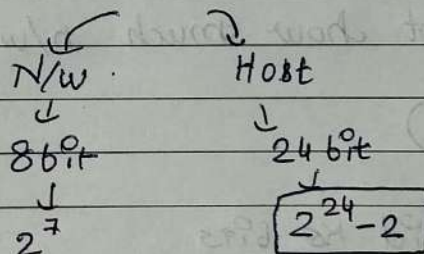 N/w. Host
8 bit 24 bit
2^7 2^24 - 2